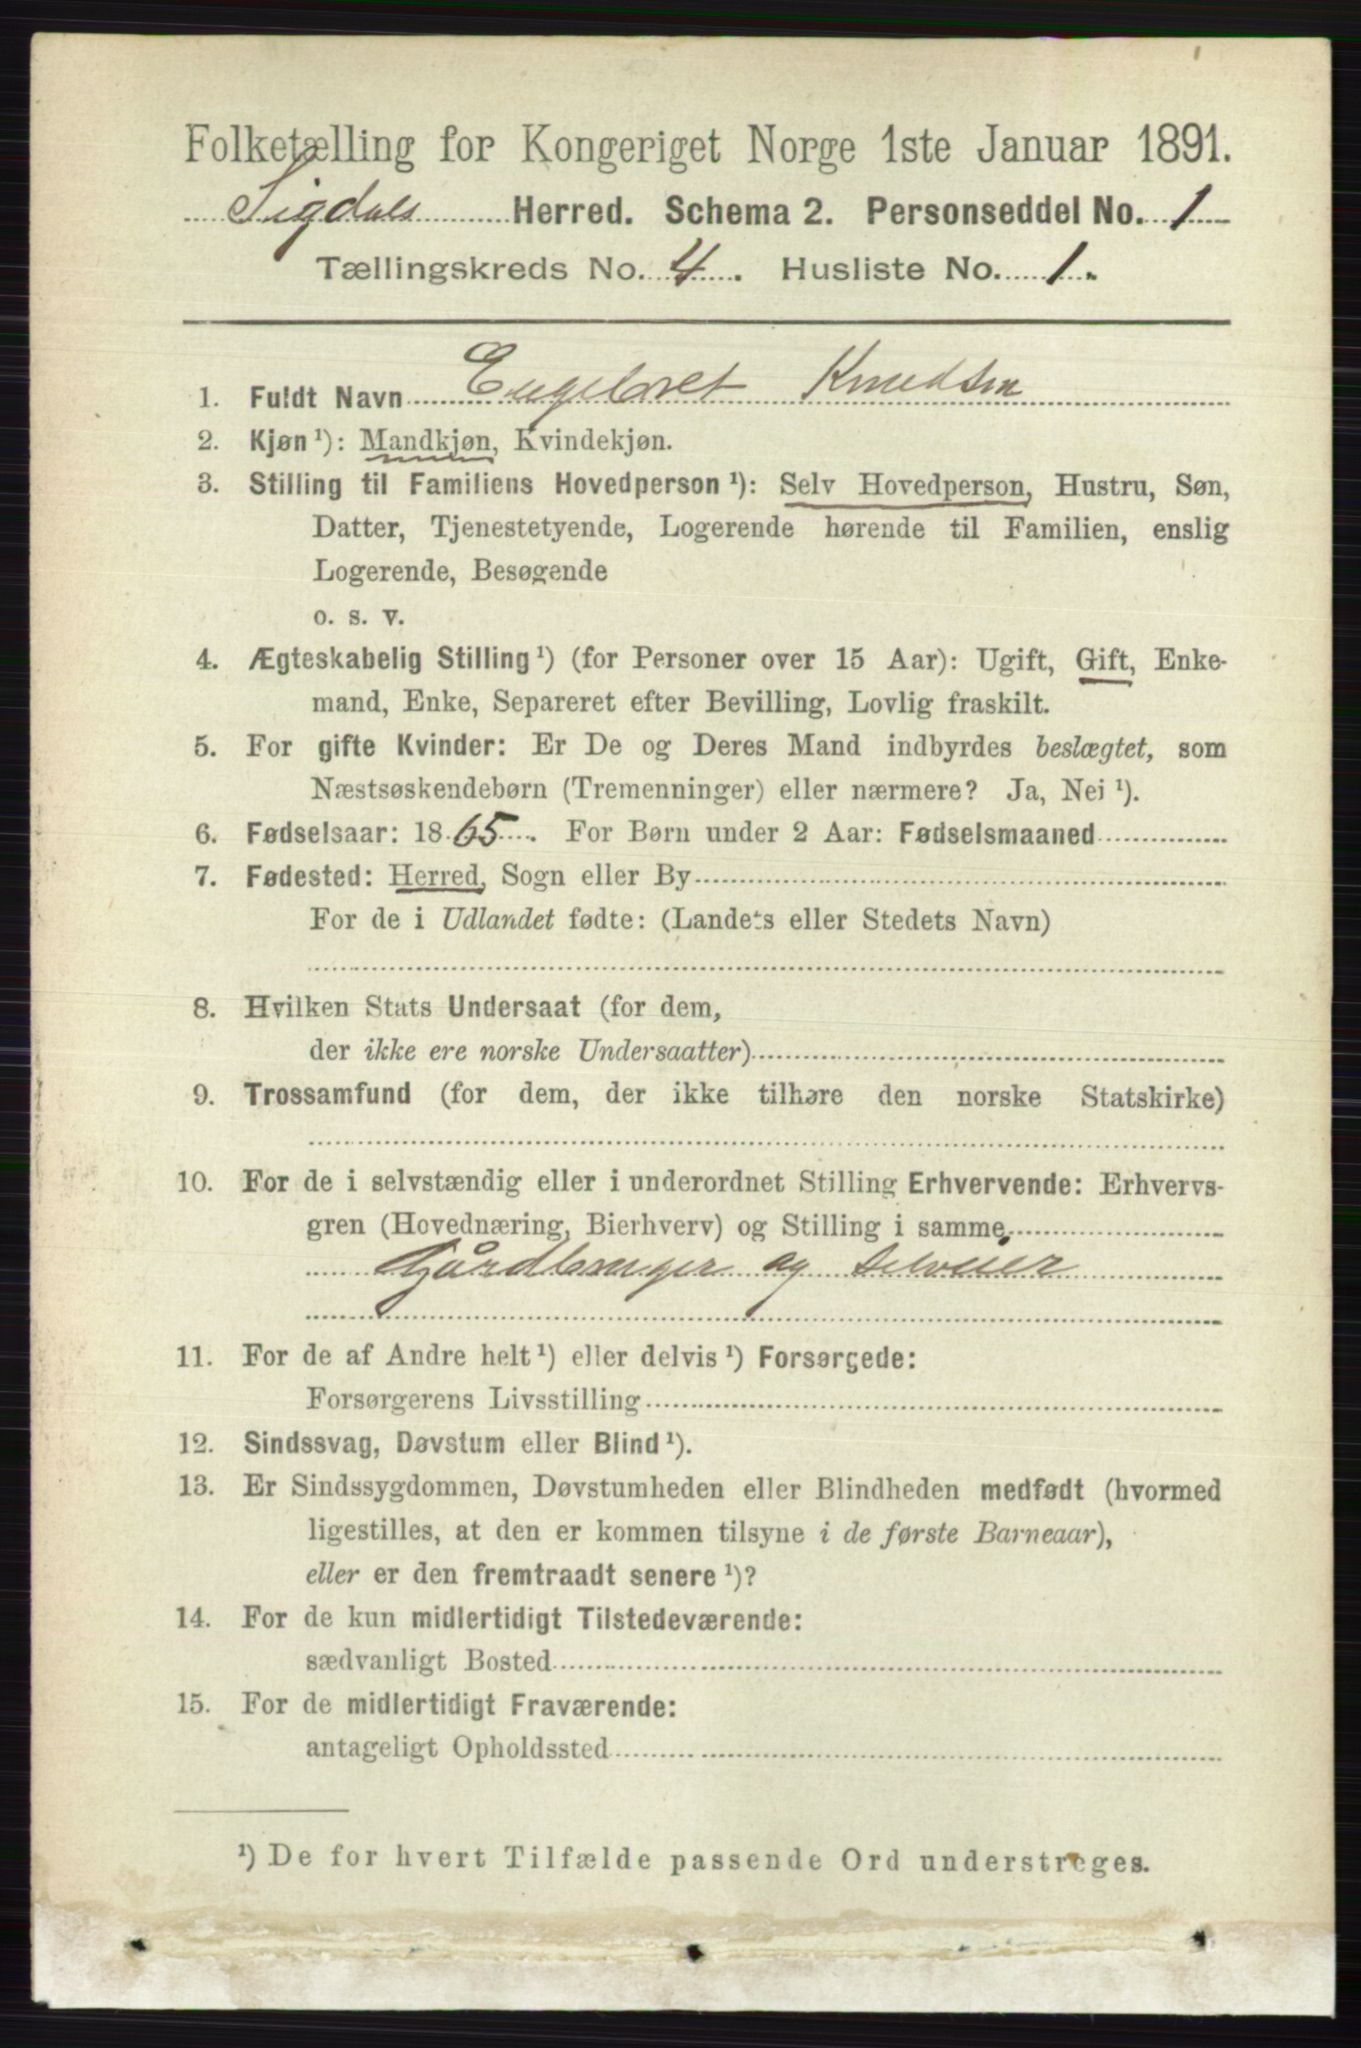 Folketælling for Kongeriget Norge 1ste Januar 1891.
Sigdals Herred. Schema 2. Personseddel No. 1
Tællingskreds No. 4. Husliste No. 1.
1. Fuldt Navn Engebret Knudsen
2. Kjøn¹): Mandkjøn, Kvindekjøn.
3. Stilling til Familiens Hovedperson¹): Selv Hovedperson, Hustru, Søn,
Datter, Tjenestetyende, Logerende hørende til Familien, enslig
Logerende, Besøgende
o. s. v.
4. Ægteskabelig Stilling¹) (for Personer over 15 Aar): Ugift, Gift, Enke-
mand, Enke, Separeret efter Bevilling, Lovlig fraskilt.
5. For gifte Kvinder: Er De og Deres Mand indbyrdes beslægtet, som
Næstsøskendebørn (Tremenninger) eller nærmere? Ja, Nei¹).
6. Fødselsaar: 1865. For Børn under 2 Aar: Fødselsmaaned
7. Fødested: Herred, Sogn eller By
For de i Udlandet fødte: (Landets eller Stedets Navn)
8. Hvilken Stats Undersaat (for dem,
der ikke ere norske Undersaatter)
9. Trossamfund (for dem, der ikke tilhøre den norske Statskirke)
10. For de i selvstændig eller i underordnet Stilling Erhvervende: Erhvervs-
gren (Hovednæring, Bierhverv) og Stilling i samme
Gårdbruger og Selveier
11. For de af Andre helt¹) eller delvis¹) Forsørgede:
Forsørgerens Livsstilling
12. Sindssvag, Døvstum eller Blind¹).
13. Er Sindssygdommen, Døvstumheden eller Blindheden medfødt (hvormed
ligestilles, at den er kommen tilsyne i de første Barneaar),
eller er den fremtraadt senere¹)?
14. For de kun midlertidigt Tilstedeværende:
sædvanligt Bosted
15. For de midlertidigt Fraværende:
antageligt Opholdssted
¹) De for hvert Tilfælde passende Ord understreges.